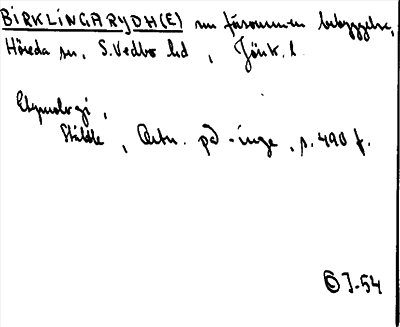 BIRKLINGARYDH(E) nu försvunnen bebyggelse,
Höreda sn, S. Vedbo hd, Jönk. l.
Etymologi,
Ståhle, Ortn. på -inge, s. 490 f.
J-54